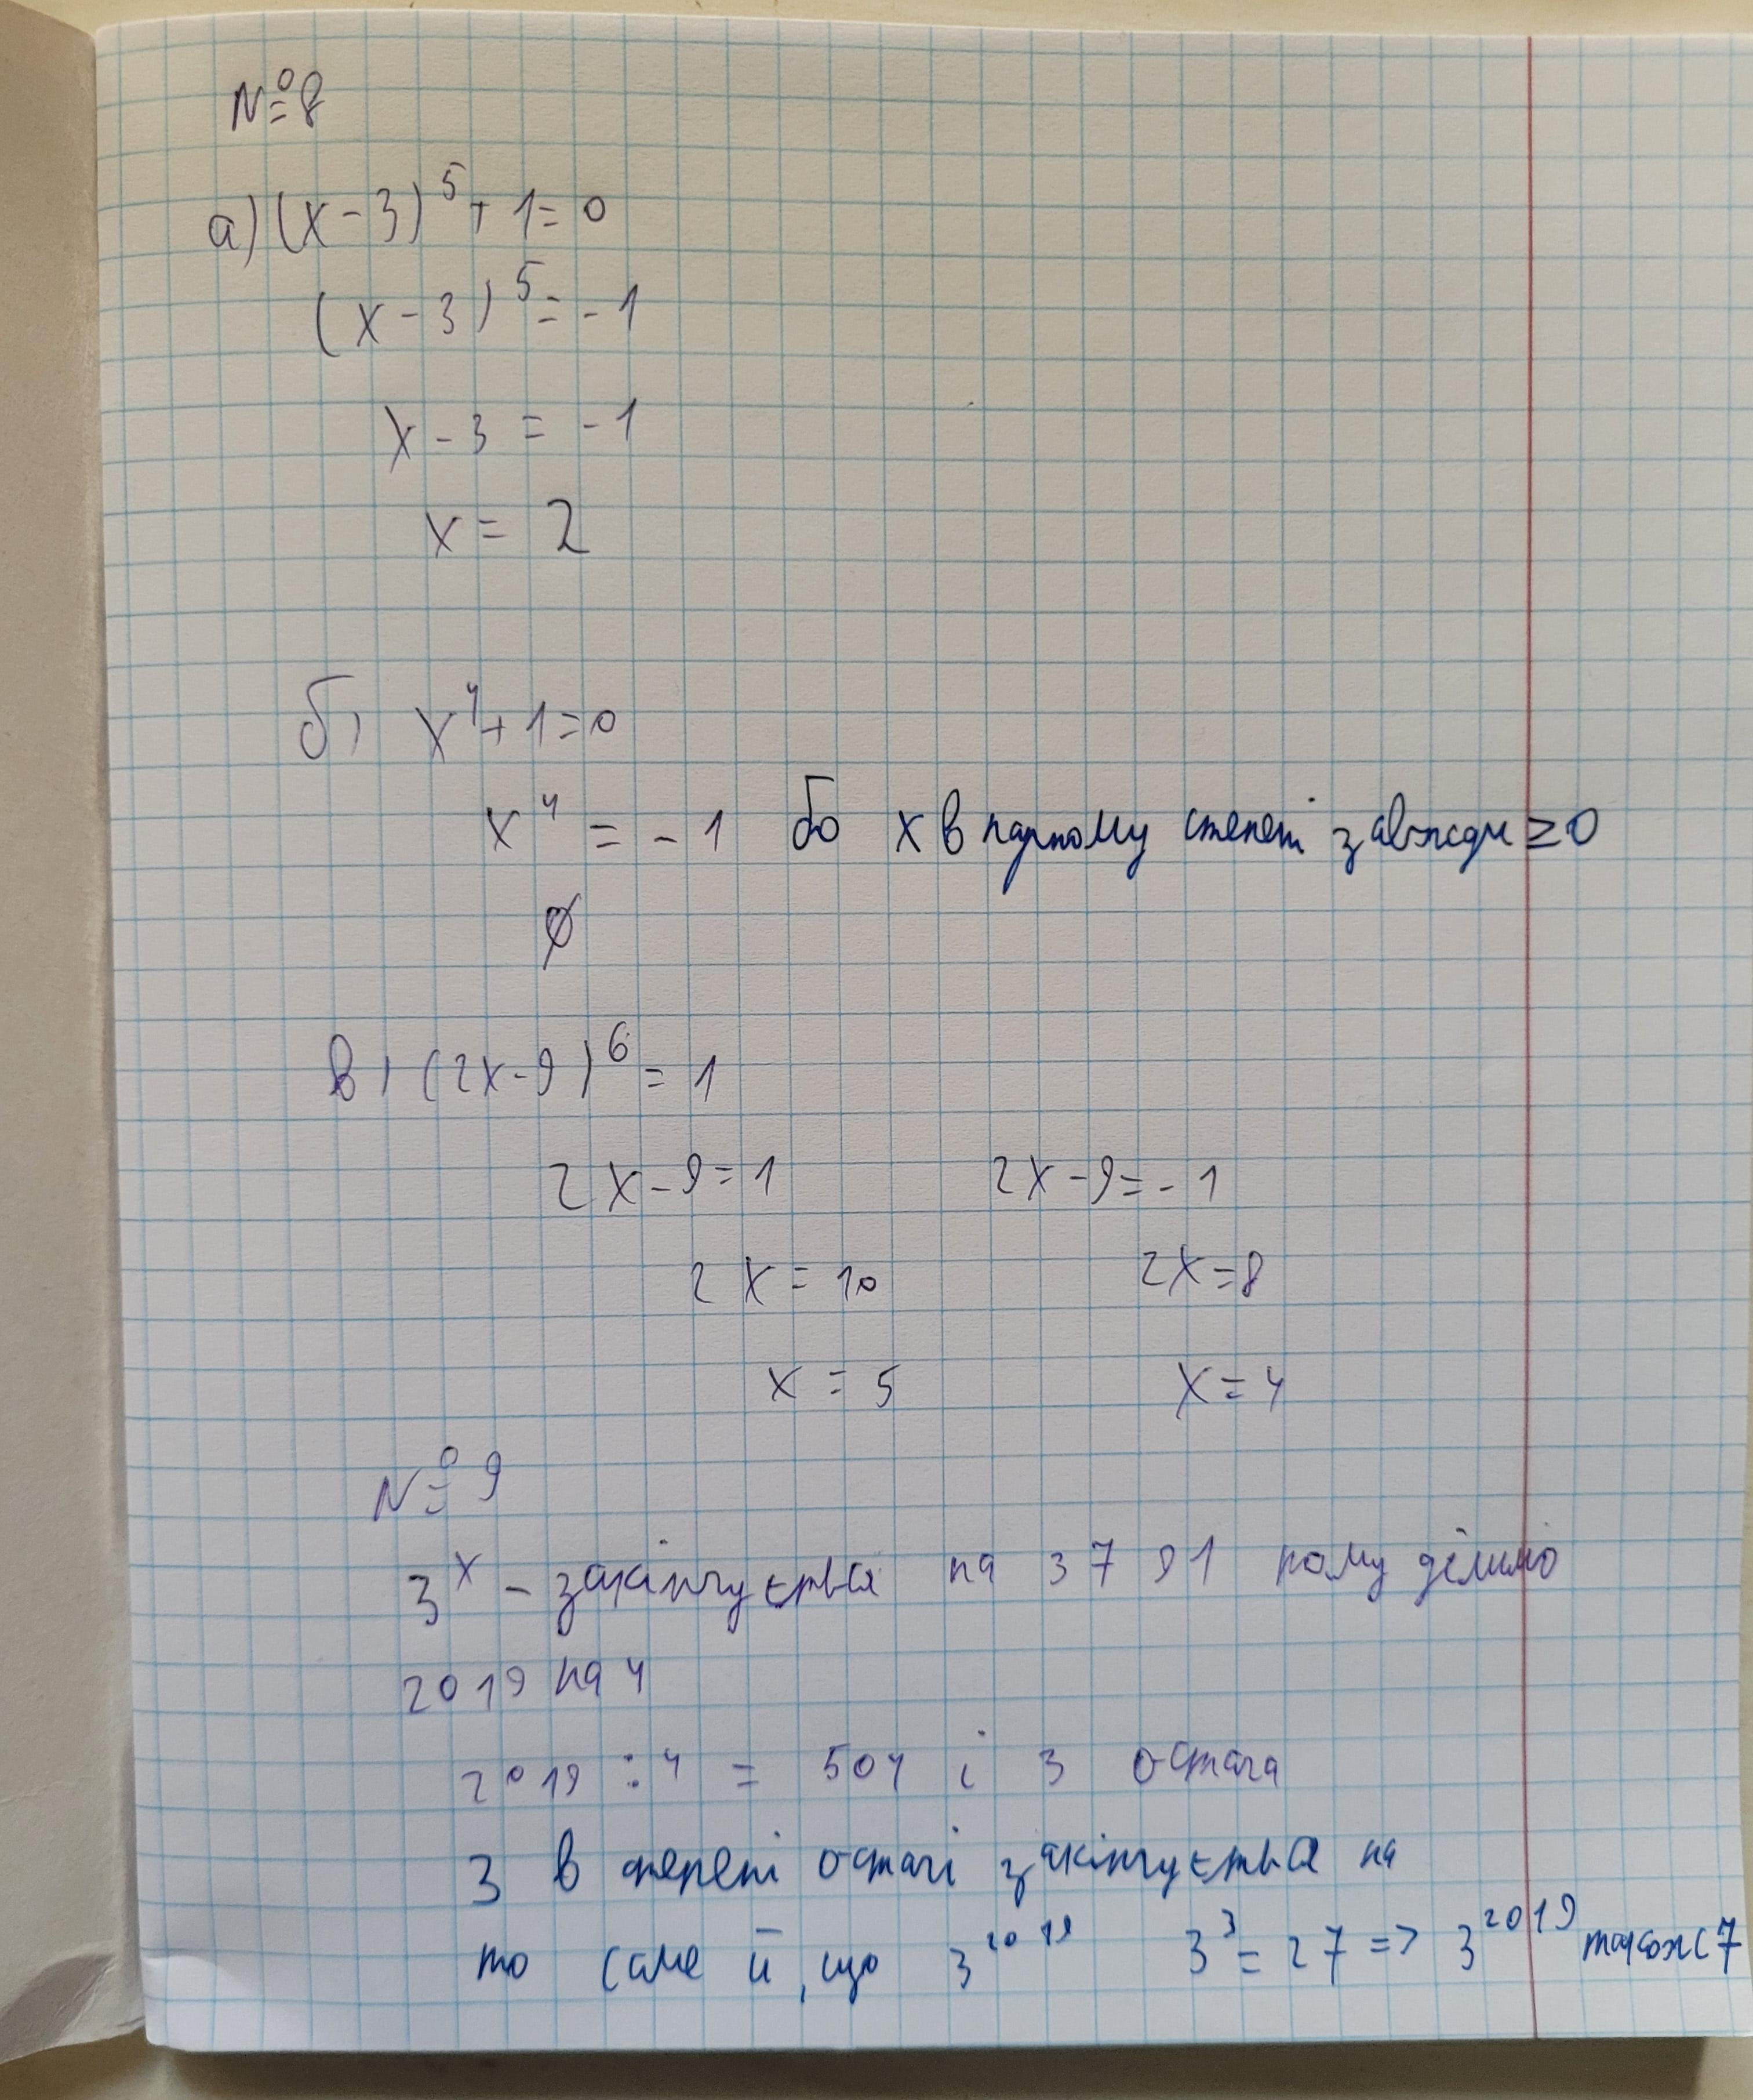 №8
а) (x-3)⁵+1=0
(x-3)⁵=-1
x-3=-1
x=2
б) x⁴+1=0
x⁴=-1 бо x в парному степені завжди ≥0
∅
в) (2x-9)⁶=1
2x-9=1 2x-9=-1
2x=10 2x=8
x=5 x=4
№9
3ˣ - закінчується на 3 7 9 1 тому ділимо
2019 на 4
2019:4=504 і 3 остача
3 в степені остачі закінчується на
то саме й, що 3²⁰¹⁹ 3³=27=>3²⁰¹⁹ також 7